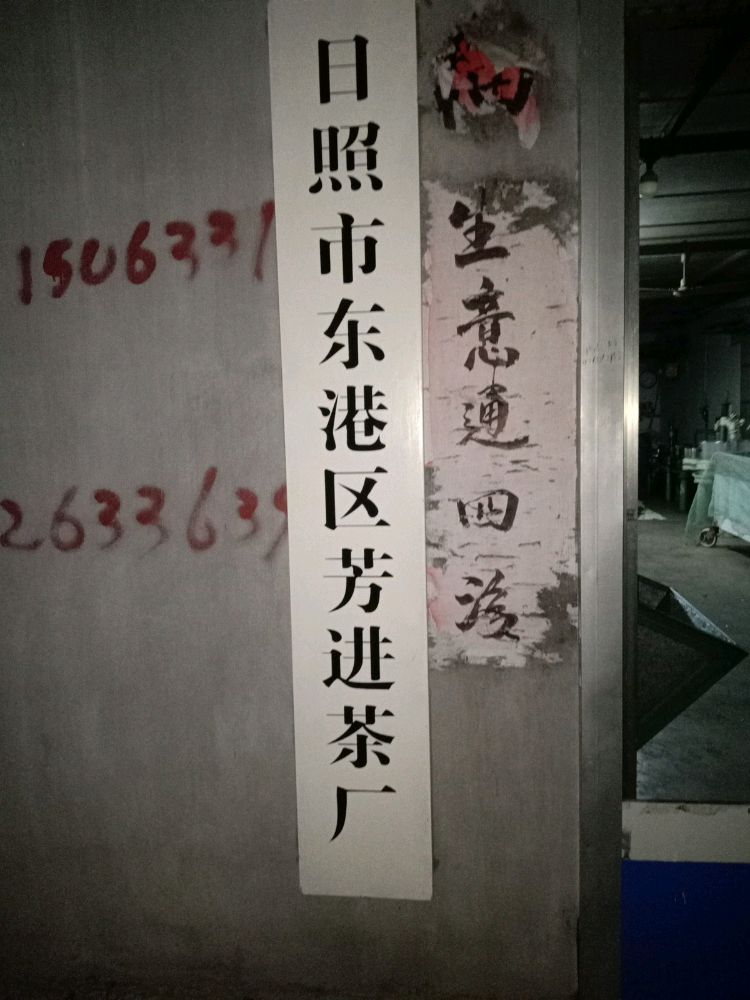 日照市东港区芳进茶厂
生意通四海
1506339
2633639